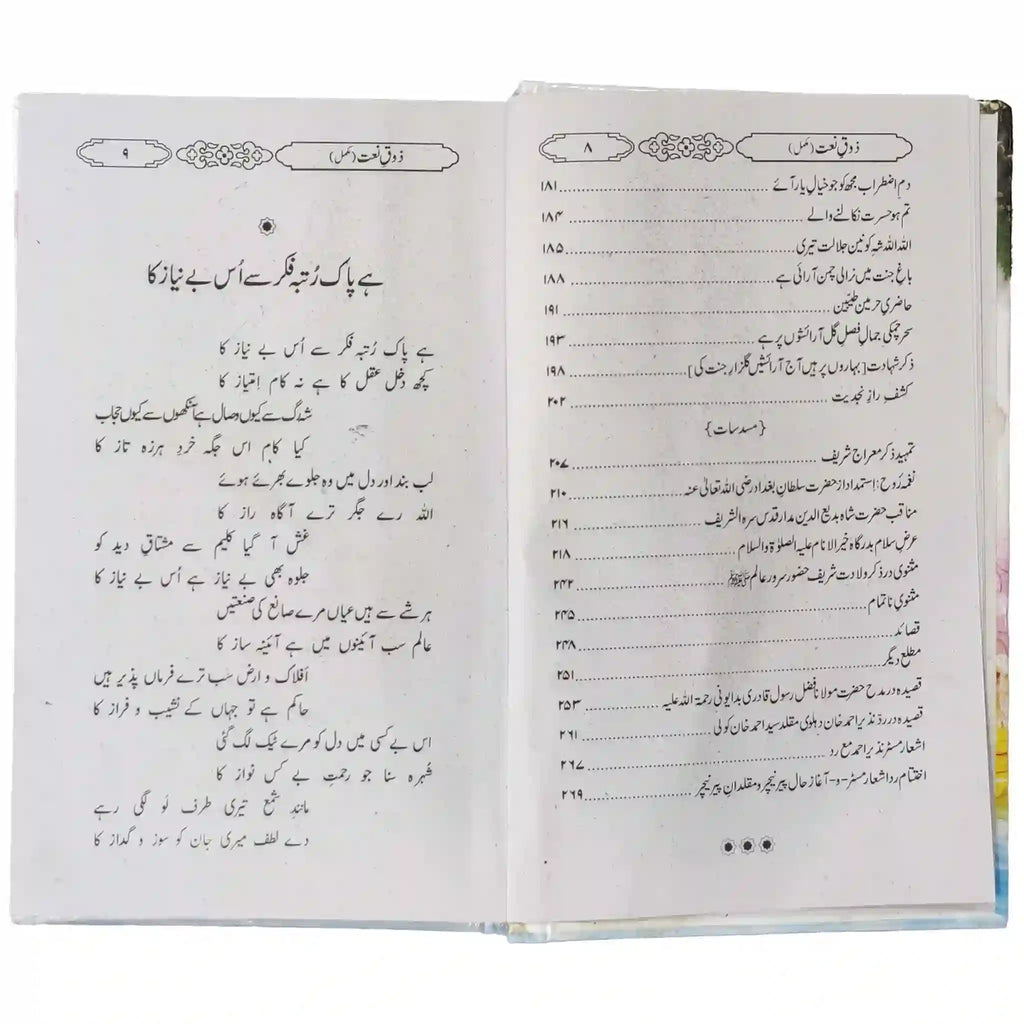 ذوقِ نعت (مکمل) ۸
دمِ اضطراب مجھ کو جو خیالِ یار آئے ۱۸۱
تم ہو حسرت نکالنے والے ۱۸۴
اللہ اللہ شہِ کونین جلالت تیری ۱۸۵
باغِ جنت میں نرالی چمن آرائی ہے ۱۸۸
حاضریِ حرمین طیبین ۱۹۱
سحر چمکی جمالِ فصلِ گل آرائشوں پر ہے ۱۹۳
ذکرِ شہادت [بہاروں پر ہیں آج آرائشیں گلزارِ جنت کی] ۱۹۸
کشفِ رازِ نجدیت ۲۰۲
{مسدسات}
تمہید ذکر معراج شریف ۲۰۷
نغمۂ رُوح: اِستمداد از حضرت سلطانِ بغداد رضی اللہ تعالیٰ عنہ ۲۱۰
مناقب حضرت شاہ بدیع الدین مدار قدس سرہ الشریف ۲۱۶
عرضِ سلام بدرگاہ خیر الانام علیہ الصلوٰۃ والسلام ۲۱۸
مثنوی در ذکر ولادت شریف حضور سرورِ عالم ﷺ ۲۴۲
مثنوی ناتمام ۲۴۵
قصائد ۲۴۸
مطلع دیگر ۲۵۱
قصیدہ در مدح حضرت مولانا فضل رسول قادری بدایونی رحمۃ اللہ علیہ ۲۵۳
قصیدہ در ردّ نذیر احمد خان دہلوی مقلد سید احمد خان کولی ۲۶۱
اشعار مسٹر نذیر احمد مع رد ۲۶۷
اختتام رد اشعار مسٹر - و - آغاز حال پیر نیچر و مقلدانِ پیر نیچر ۲۶۹
ذوقِ نعت (مکمل) ۹
ہے پاک رُتبہ فکر سے اُس بے نیاز کا
ہے پاک رُتبہ فکر سے اُس بے نیاز کا
کچھ دخل عقل کا ہے نہ کام اِمتیاز کا
شہ رگ سے کیوں وصال ہے آنکھوں سے کیوں حجاب
کیا کام اس جگہ خردِ ہرزہ تاز کا
لب بند اور دل میں وہ جلوے بھرئے ہوئے
اللہ رے جگر ترے آگاہ راز کا
غش آ گیا کلیم سے مشتاقِ دید کو
جلوہ بھی بے نیاز ہے اُس بے نیاز کا
ہر شے سے ہیں عیاں مرے صانع کی صنعتیں
عالم سب آئینوں میں ہے آئینہ ساز کا
اَفلاک و ارض سب ترے فرماں پذیر ہیں
حاکم ہے تو جہاں کے نشیب و فراز کا
اس بے کسی میں دل کو مرے ٹیک لگ گئی
شُہرہ سنا جو رحمتِ بے کس نواز کا
مانندِ شمع تیری طرف لَو لگی رہے
دے لطف میری جان کو سوز و گداز کا